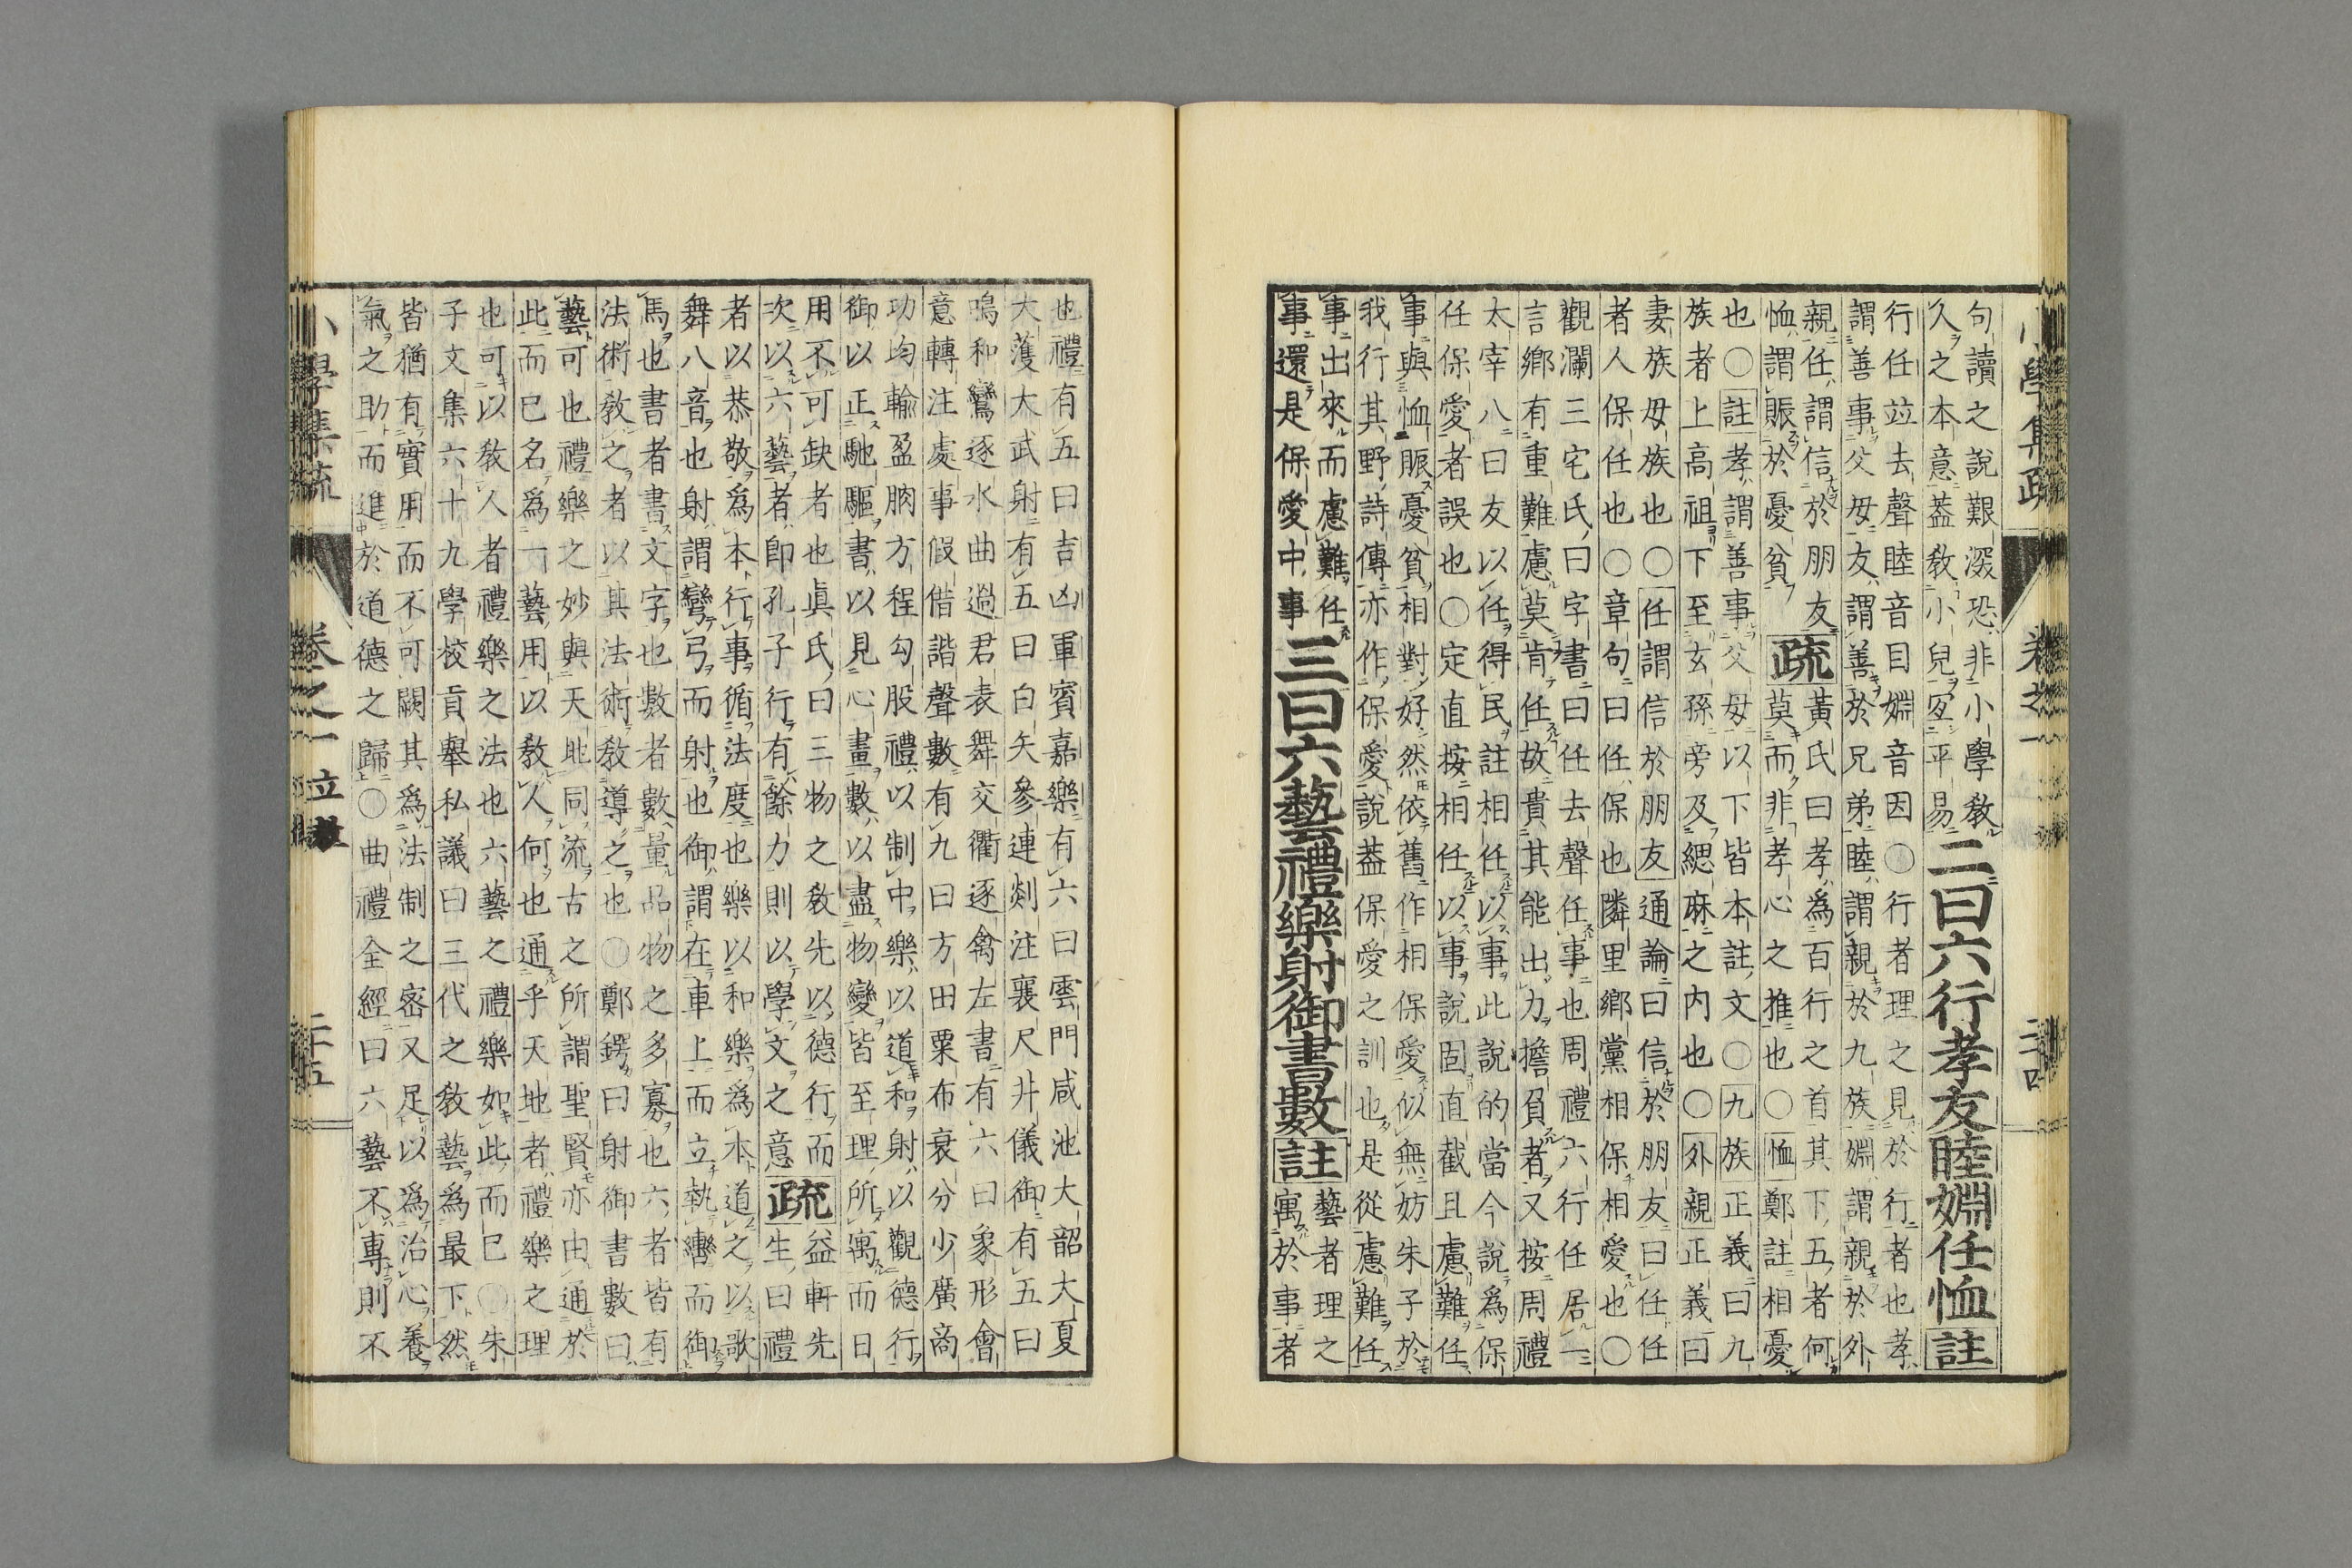 句讀之說艱深恐非小學教
久之本意葢教小兒宜平易
二曰六行孝友睦婣任恤註
行任竝去聲睦音目婣音因〇行者理之見於行者也孝
謂善事父母友謂善於兄弟睦謂親於九族婣謂親於外
親任謂信於朋友
恤謂賑於憂貧
疏
黃氏曰孝爲百行之首其下五者何
莫而非孝心之推也〇恤鄭註相憂
也〇註孝謂善事父母以下皆本註文〇九族正義曰九
族者上高祖下至玄孫旁及緦麻之内也〇外親正義曰
妻族母族也〇任謂信於朋友通論曰信於朋友曰任任
者人保任也〇章句曰任保也隣里鄉黨相保相愛也〇
觀瀾三宅氏曰字書曰任去聲任事也周禮六行任居一
言鄉有重難慮莫肯任故貴其能出力擔負者又按周禮
太宰八曰友以任得民註相任以事此說的當今說爲保
任保愛者誤也〇定直按相任以事說固直截且慮難任
事與恤賑憂貧相對好然依舊作相保愛似無妨朱子於
我行其野詩傳亦作保愛說葢保愛之訓也是從慮難任
事出來而慮難任
事還是保愛中事
三曰六藝禮樂射御書數註
藝者理之
寓於事者
也禮有五曰吉凶軍賓嘉樂有六曰雲門咸池大韶大夏
大濩大武射有五曰白矢參連剡注襄尺井儀御有五曰
鳴和鸞逐水曲過君表舞交衢逐禽左書有六曰象形會
意轉注處事假借諧聲數有九曰方田粟布衰分少廣商
功均輸盈朒方程勾股禮以制中樂以道和射以觀德行
御以正馳驅書以見心畫數以盡物變皆至理所寓而日
用不可缺者也眞氏曰三物之教先以德行而益軒先
次以六藝者卽孔子行有餘力則以學文之意疏生曰禮
者以恭敬爲本行事循法度也樂以和樂爲本道之以歌
舞八音也射謂彎弓而射也御謂在車上而立執轡而御
馬也書者書文字也數者數量品物之多寡也六者皆有
法術教之者以其法術教導之也〇鄭鍔曰射御書數曰
藝可也禮樂之妙與天地同流古之所謂聖賢亦由通於
此而已名爲一藝用以教人何也通乎天地者禮樂之理
也可以教人者禮樂之法也六藝之禮樂如此而已〇朱
子文集六十九學校貢舉私議曰三代之教藝爲最下然
皆猶有實用而不可闕其爲法制之密又足以爲治心養
氣之助而進於道德之歸〇曲禮全經曰六藝不專則不
小學集疏
卷之一
立教
二十五